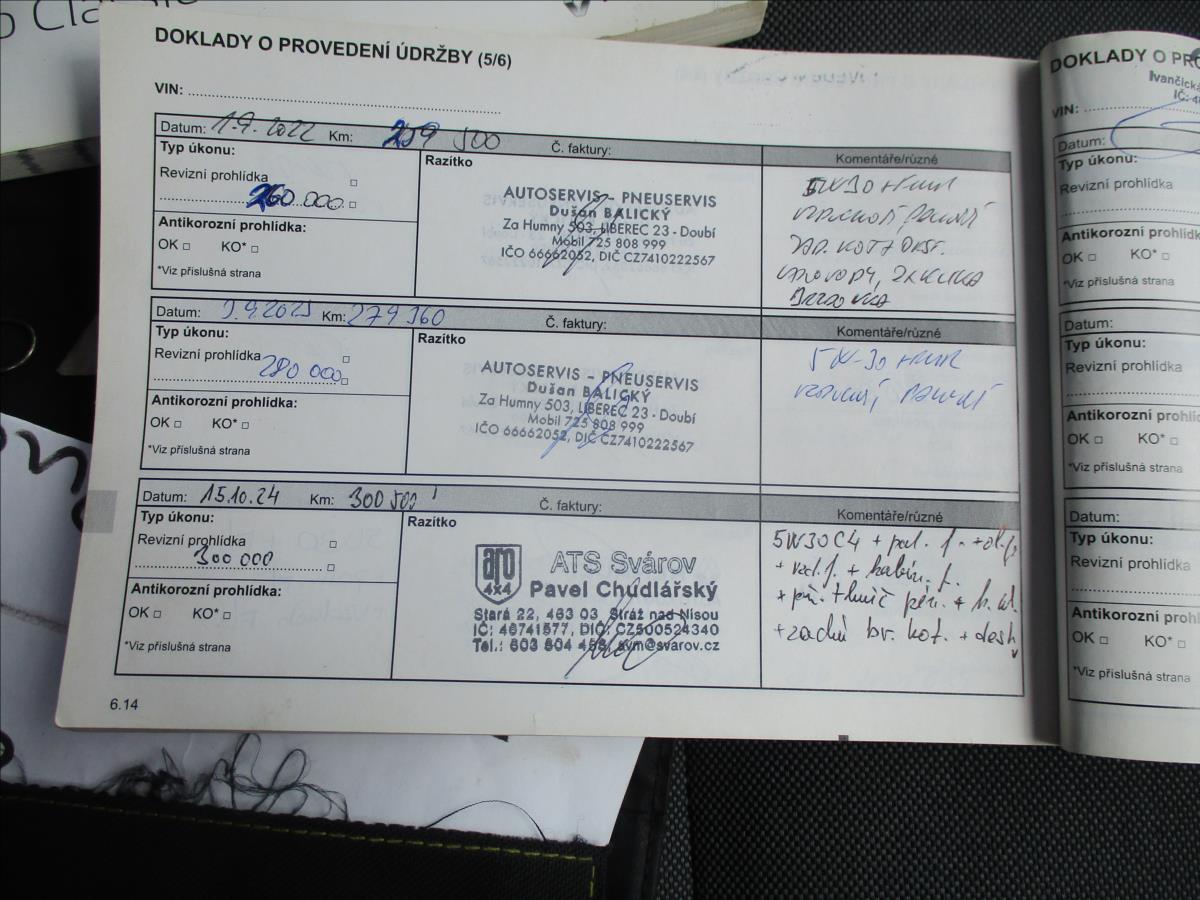 DOKLADY O PROVEDENÍ ÚDRŽBY (5/6)
VIN:
Datum: 1.9.2022 Km: 259 500 Č. faktury:
Komentáře/různé
Typ úkonu:
Razítko
Revizní prohlídka
260.000
Antikorozní prohlídka:
OK KO*
*Viz příslušná strana
AUTOSERVIS - PNEUSERVIS
Dušan BALICKÝ
Za Humny 503, LIBEREC 23 - Doubí
Mobil 725 808 999
IČO 66662052, DIČ CZ7410222567
5W30 + FILTR
Datum: Km: 279 360 Č. faktury:
Komentáře/různé
Typ úkonu:
Razítko
Revizní prohlídka
280 000
Antikorozní prohlídka:
OK KO*
*Viz příslušná strana
AUTOSERVIS - PNEUSERVIS
Dušan BALICKÝ
Za Humny 503, LIBEREC 23 - Doubí
Mobil 725 808 999
IČO 66662052, DIČ CZ7410222567
5W-30 + FILTR
Datum: 15.10.24 Km: 300 500 Č. faktury:
Komentáře/různé
Typ úkonu:
Razítko
Revizní prohlídka
300 000
Antikorozní prohlídka:
OK KO*
*Viz příslušná strana
aro
4x4
ATS Svárov
Pavel Chudlářský
Stará 22, 463 03 Stráž nad Nisou
IČ: 46741577, DIČ: CZ500524340
Tel.: 603 804 458, svm@svarov.cz
5W30C4 + pal. f. + ol. f.
+ vzd. f. + kabin. f.
+ zadní br. kot. + desk
6.14
DOKLADY O
Ivančická
VIN:
Datum:
Typ úkonu:
Revizní prohlídka
Antikorozní
OK KO*
*Viz příslušná strana
Datum:
Typ úkonu:
Revizní prohlídka
Antikorozní proh
OK KO*
*Viz příslušná strana
Datum:
Typ úkonu:
Revizní prohlídka
Antikorozní
OK KO*
*Viz příslušná strana